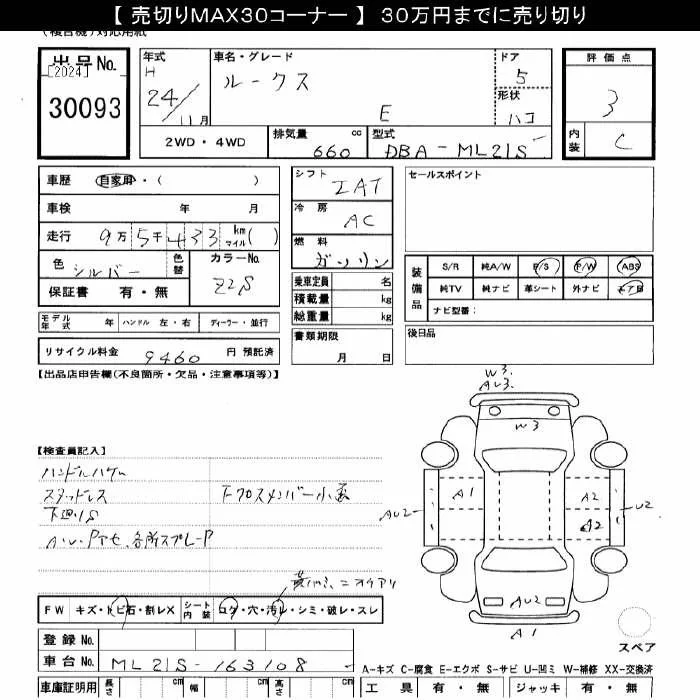 【 売切りMAX30コーナー 】 30万円までに売り切り
出品No.
[2024]
30093
年式
H
24/11月
車名・グレード
ルークス
E
ドア
5
形状
ハコ
評価点
3
内装
C
2WD・4WD
排気量
660
cc
型式
DBA-ML21S
車歴 自家用・( )
車検 年 月
走行 9万5千433 km マイル( )
色 シルバー
色替
カラーNo.
Z2S
保証書 有・無
シフト
IAT
冷房
AC
燃料
ガソリン
乗車定員 名
積載量 kg
総重量 kg
セールスポイント
装備品
S/R 純A/W P/S P/W ABS
純TV 純ナビ 革シート 外ナビ エアB
ナビ型番:
モデル年式 年 ハンドル 左・右 ディーラー・並行
リサイクル料金 9460 円 預託済
書類期限
月 日
後日品
【出品店申告欄(不良箇所・欠品・注意事項等)】
【検査員記入】
ハンドルハゲ
スタッドレス
下廻りS
下クロスメンバー小歪
各所スプレー
W3.
AU3.
W3
A1
A2
AU2
U2
A2
AU2
A1
FW キズ・トビ石・割レX シート内装 コゲ・穴・汚レ・シミ・破レ・スレ
登録 No.
車台 No. ML21S-163108
スペア
A-キズ C-腐食 E-エクボ S-サビ U-凹ミ W-補修 XX-交換済
車庫証明用 長さ cm 幅 cm 高さ cm
工具 有・無 ジャッキ 有・無